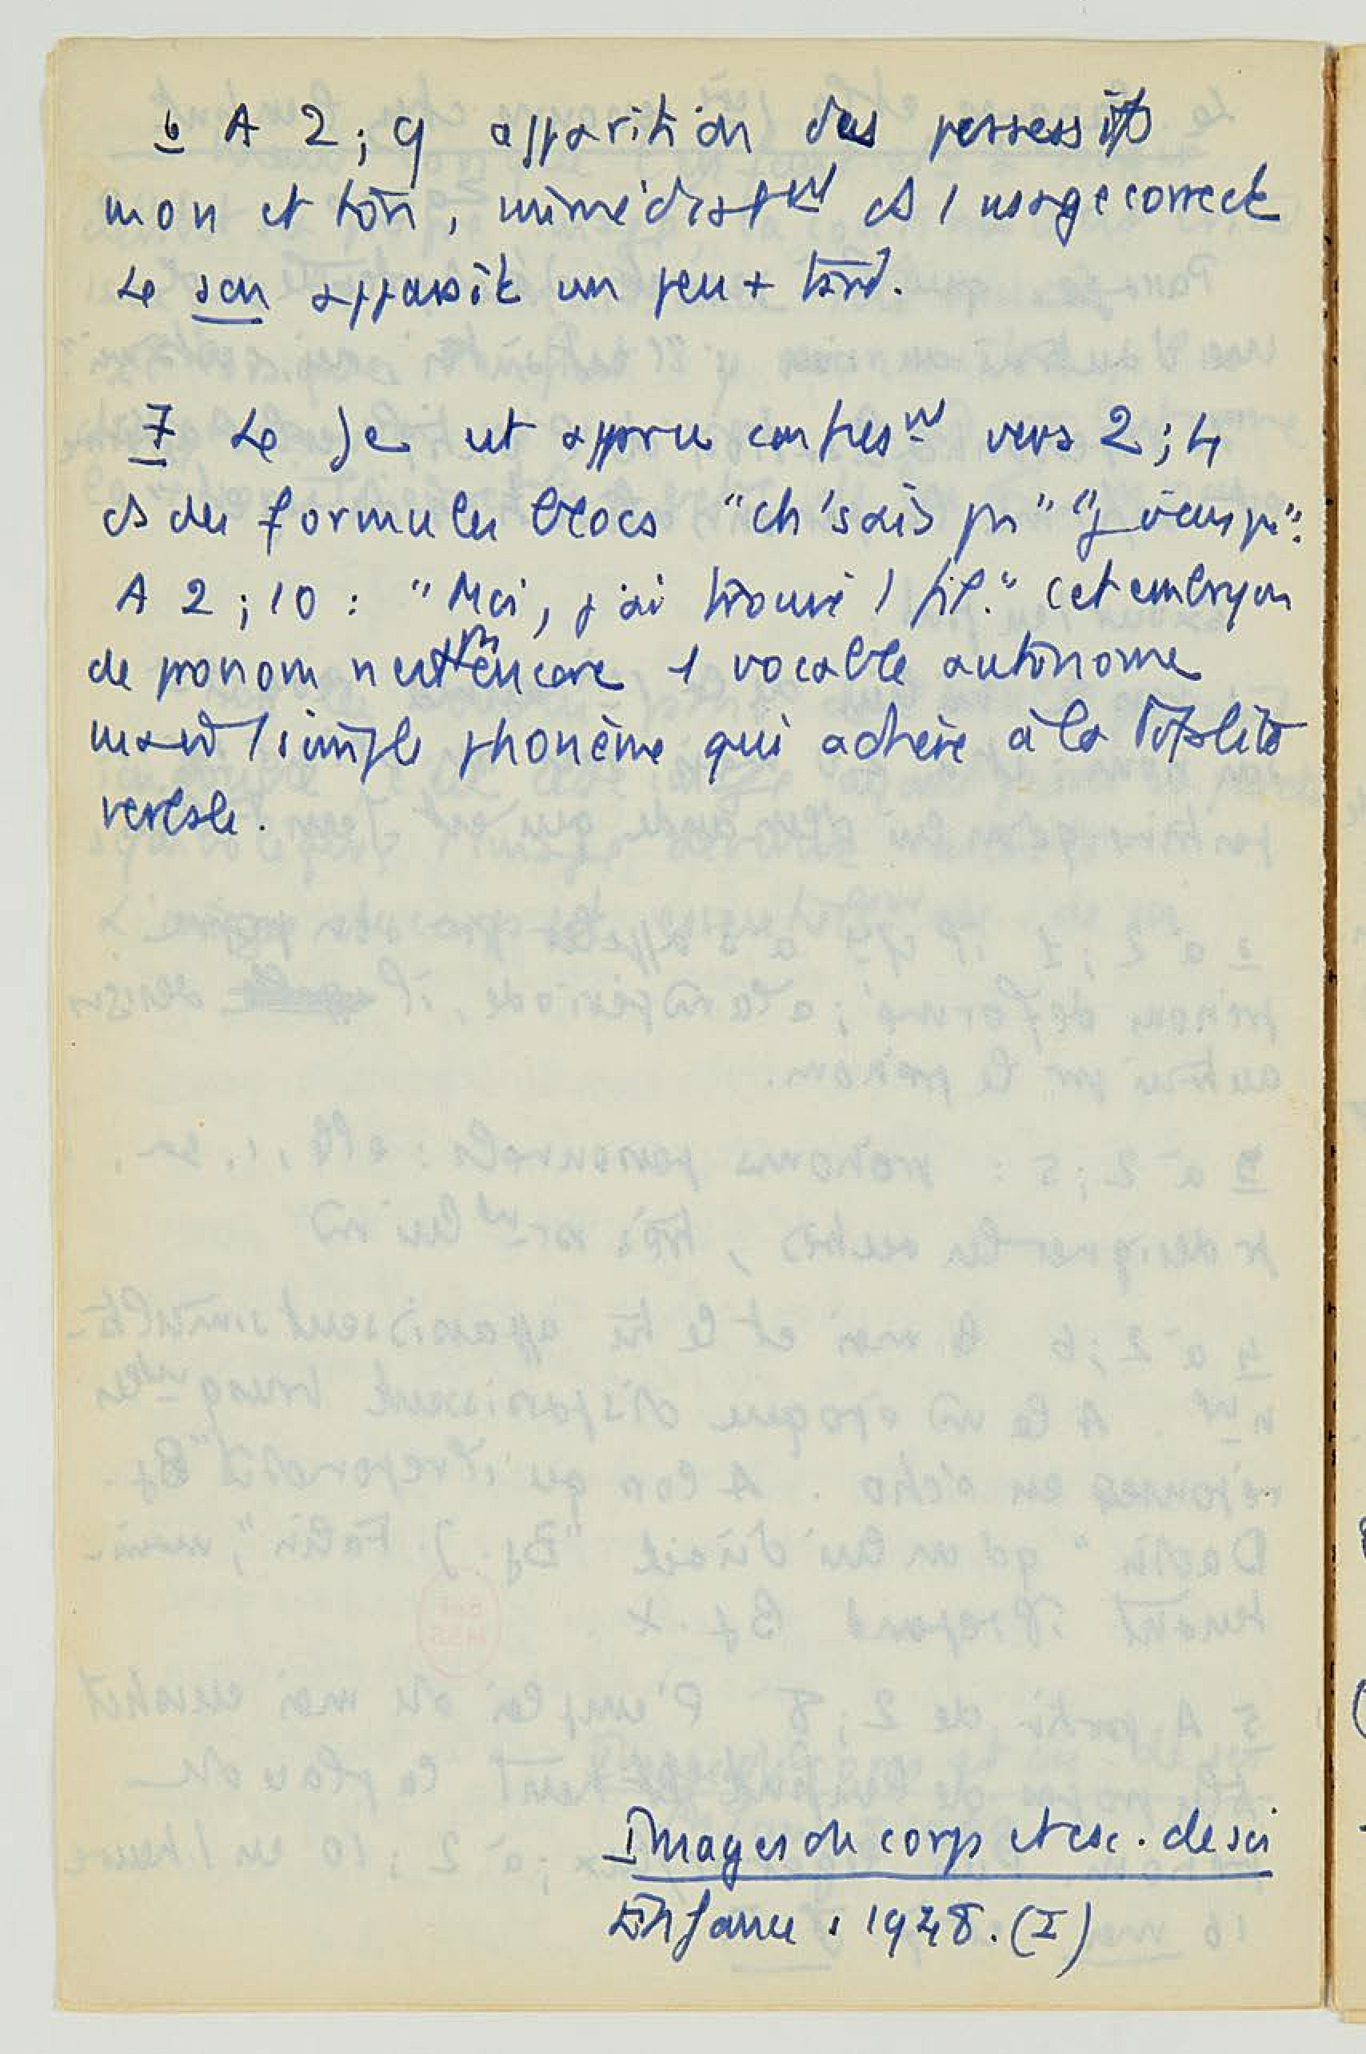 6 A 2 ; 9 apparition des possessifs
mon et ton, immédiatnt ds 1 usage correct
Le son apparaît un peu + tard.
7 Le Je est apparu confusnt vers 2 ; 4
ds des formules blocs "ch'sais pas"
A 2 ; 10 : "Moi, j'ai trouvé 1 fil." Cet embryon
de pronom n'est pas encore 1 vocable autonome
mais 1 simple phonème qui adhère à la totalité
verbale.
Images du corps et csc. de soi
Enfance : 1948. (I)